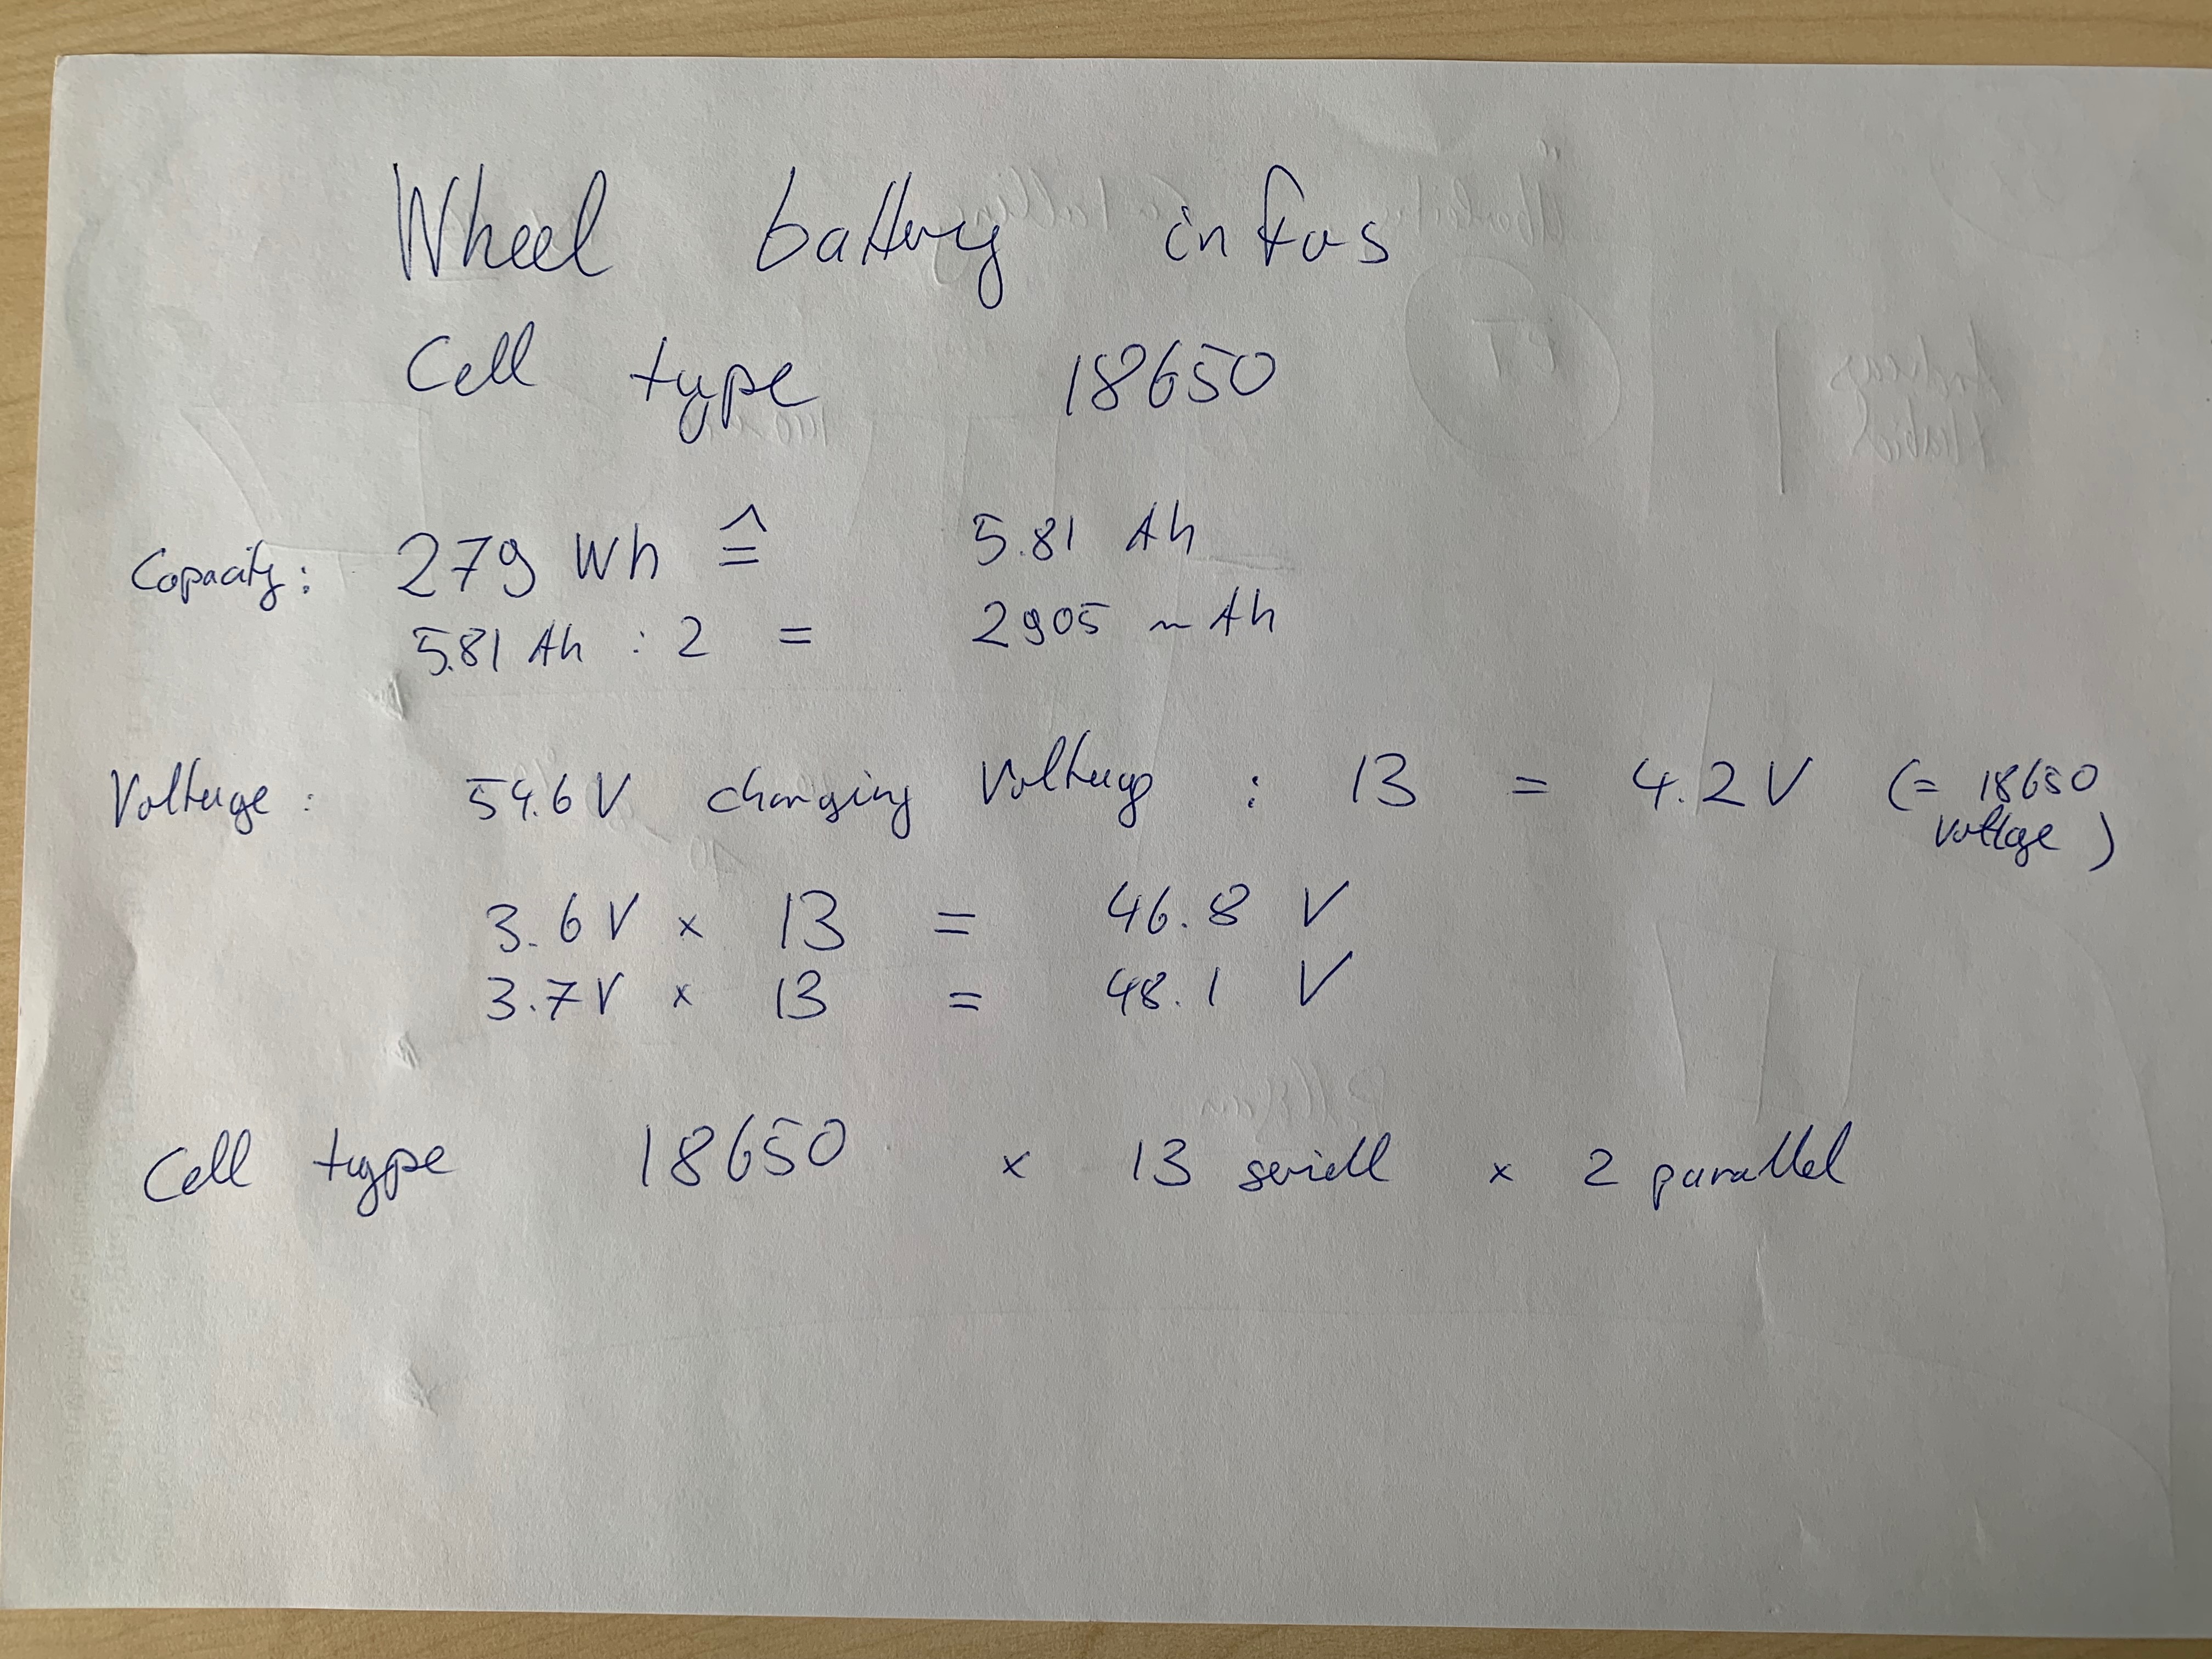 Wheel battery infos
Cell type 18650
Capacity: 279 Wh ≙ 5.81 Ah
5.81 Ah : 2 = 2905 mAh
Voltage: 54.6 V charging voltage : 13 = 4.2 V (= 18650
voltage)
3.6 V x 13 = 46.8 V
3.7 V x 13 = 48.1 V
Cell type 18650 x 13 seriell x 2 parallel